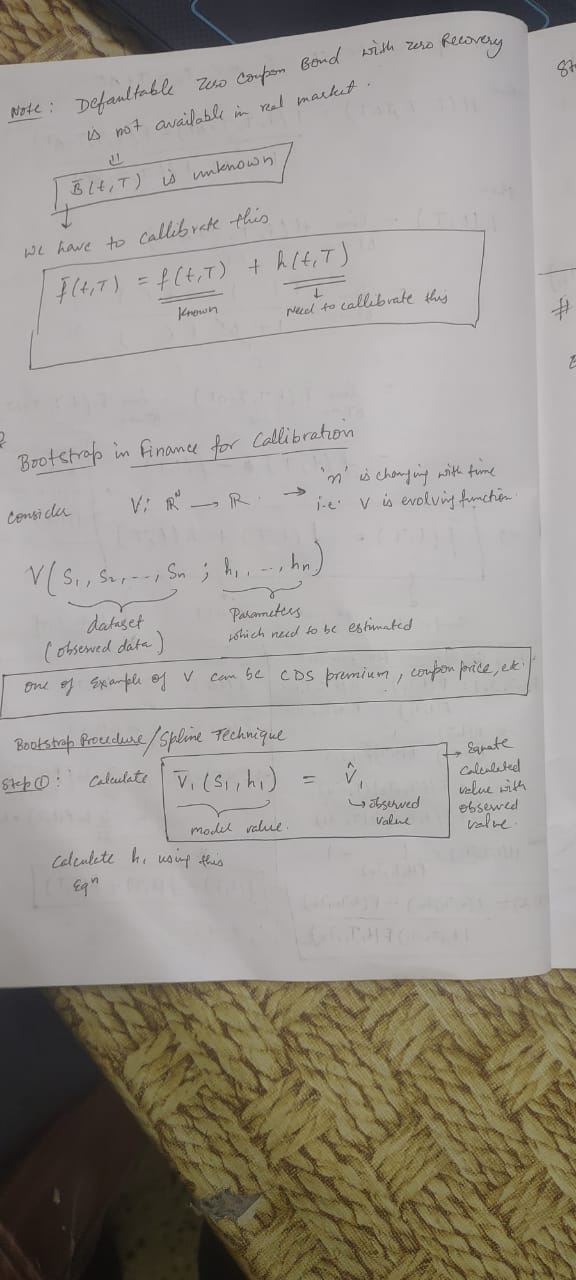 Note: Defaultable Zero Coupon Bond with zero Recovery
is not available in real market.
B̄(t,T) is unknown
we have to callibrate this
f̄(t,T) = f(t,T) + h(t,T)
Known
Need to callibrate this
Bootstrap in Finance for Callibration
consider V: ℝᴺ → ℝ. → 'n' is changing with time
i.e. V is evolving function.
V(S₁, S₂, ..., Sn ; h₁, ..., hn)
dataset
(observed data)
Parameters
which need to be estimated
one of Example of V can be CDS premium, coupon price, etc.
Bootstrap Procedure/Spline Technique
Step ①: Calculate V̄₁(S₁, h₁) = V̂₁
model value.
observed
value
→ Equate
calculated
value with
observed
value.
calculate h₁ using this
Eqⁿ
St
#